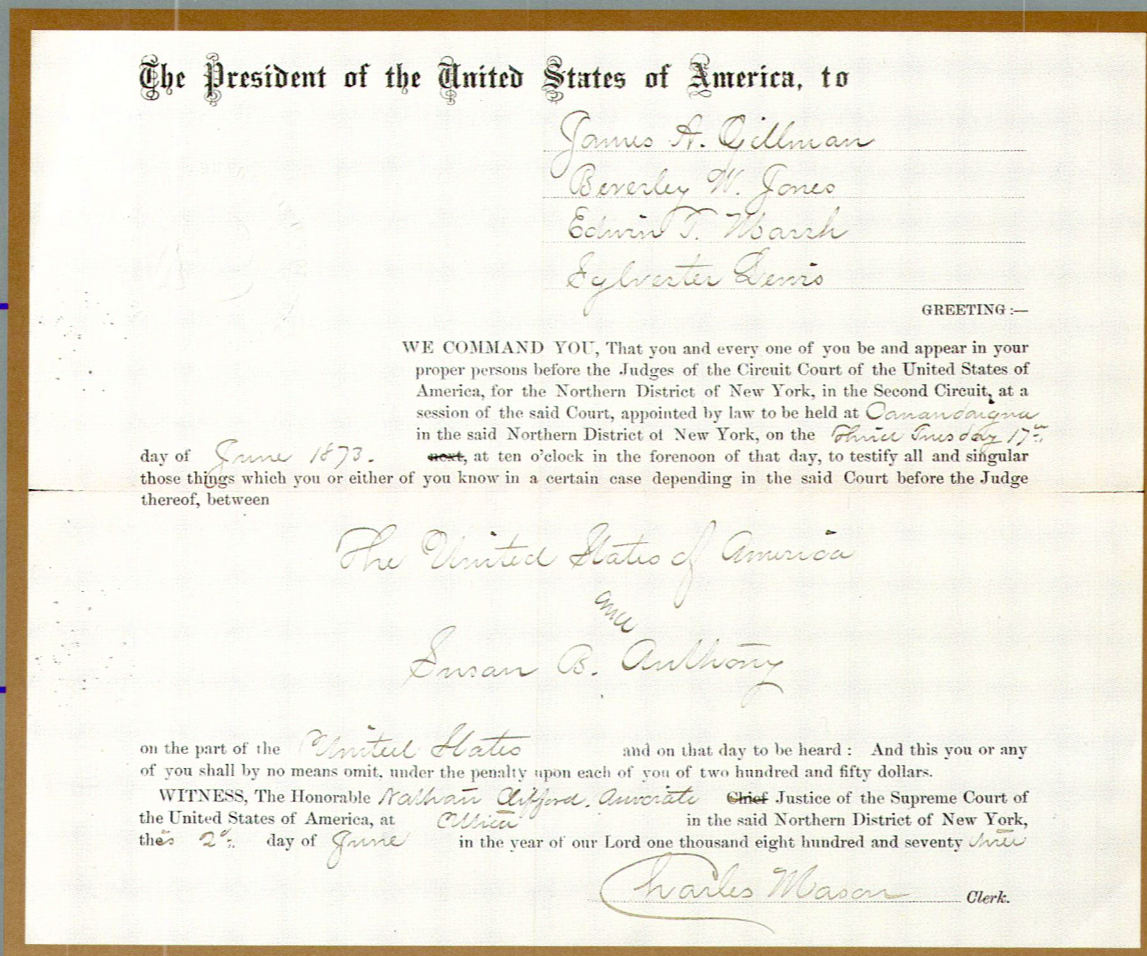 The President of the United States of America, to
James A. Gillman
Beverley W. Jones
Edwin T. Marsh
Sylvester Lewis
GREETING :—
WE COMMAND YOU, That you and every one of you be and appear in your
proper persons before the Judges of the Circuit Court of the United States of
America, for the Northern District of New York, in the Second Circuit, at a
session of the said Court, appointed by law to be held at Canandaigua
in the said Northern District of New York, on the Third Tuesday 17th
day of June 1873. next, at ten o'clock in the forenoon of that day, to testify all and singular
those things which you or either of you know in a certain case depending in the said Court before the Judge
thereof, between
The United States of America
and
Susan B. Anthony
on the part of the United States and on that day to be heard : And this you or any
of you shall by no means omit, under the penalty upon each of you of two hundred and fifty dollars.
WITNESS, The Honorable Nathan Clifford, Associate Chief Justice of the Supreme Court of
the United States of America, at Utica in the said Northern District of New York,
this 2d. day of June in the year of our Lord one thousand eight hundred and seventy three
Charles Mason Clerk.